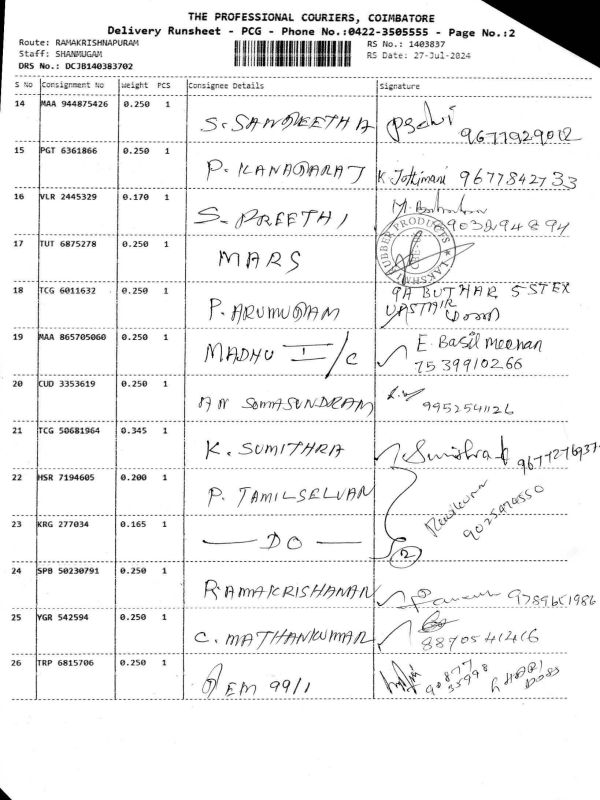 THE PROFESSIONAL COURIERS, COIMBATORE
Delivery Runsheet - PCG - Phone No.:0422-3505555 - Page No.:2
Route: RAMAKRISHNAPURAM RS No.: 1403837
Staff: SHANMUGAM RS Date: 27-Jul-2024
DRS No.: DCJB140383702
S No Consignment No Weight PCS Consignee Details Signature
14 MAA 944875426 0.250 1 S. SANGEETHA 9677929012
15 PGT 6361866 0.250 1 P. KANAGARAJ K. Jothimani 9677842733
16 VLR 2445329 0.170 1 S. PREETHI
17 TUT 6875278 0.250 1 MARS RUBBER PRODUCTS LAKSHMI
18 TCG 6011632 0.250 1 P. ARUMUGAM 9A BUTHAR 5 STEX
UPSTAIR
19 MAA 865705060 0.250 1 MADHU I/C E. Basil Meenan
7539910266
20 CUD 3353619 0.250 1 SOMASUNDRAM
9952541126
21 TCG 50681964 0.345 1 K. SUMITHRA Sumithra
22 HSR 7194605 0.200 1 P. TAMILSELVAN
23 KRG 277034 0.165 1 — DO — 2
24 SPB 50230791 0.250 1 RAMAKRISHANAN 9789651986
25 YGR 542594 0.250 1 C. MATHANKUMAR
8870541416
26 TRP 6815706 0.250 1 GEM 99/1 90877
35998